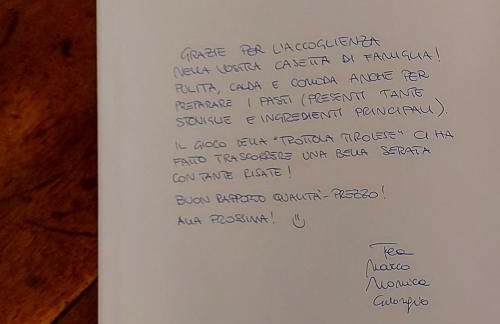 GRAZIE PER L'ACCOGLIENZA
NELLA VOSTRA CASETTA DI FAMIGLIA!
PULITA, CALDA E COMODA ANCHE PER
PREPARARE I PASTI (PRESENTI TANTE
STOVIGLIE E INGREDIENTI PRINCIPALI).
IL GIOCO DELLA "TROTTOLA TIROLESE" CI HA
FATTO TRASCORRERE UNA BELLA SERATA
CON TANTE RISATE!
BUON RAPPORTO QUALITÀ-PREZZO!
ALLA PROSSIMA! :)
Tea
Marco
Monica
Giorgio